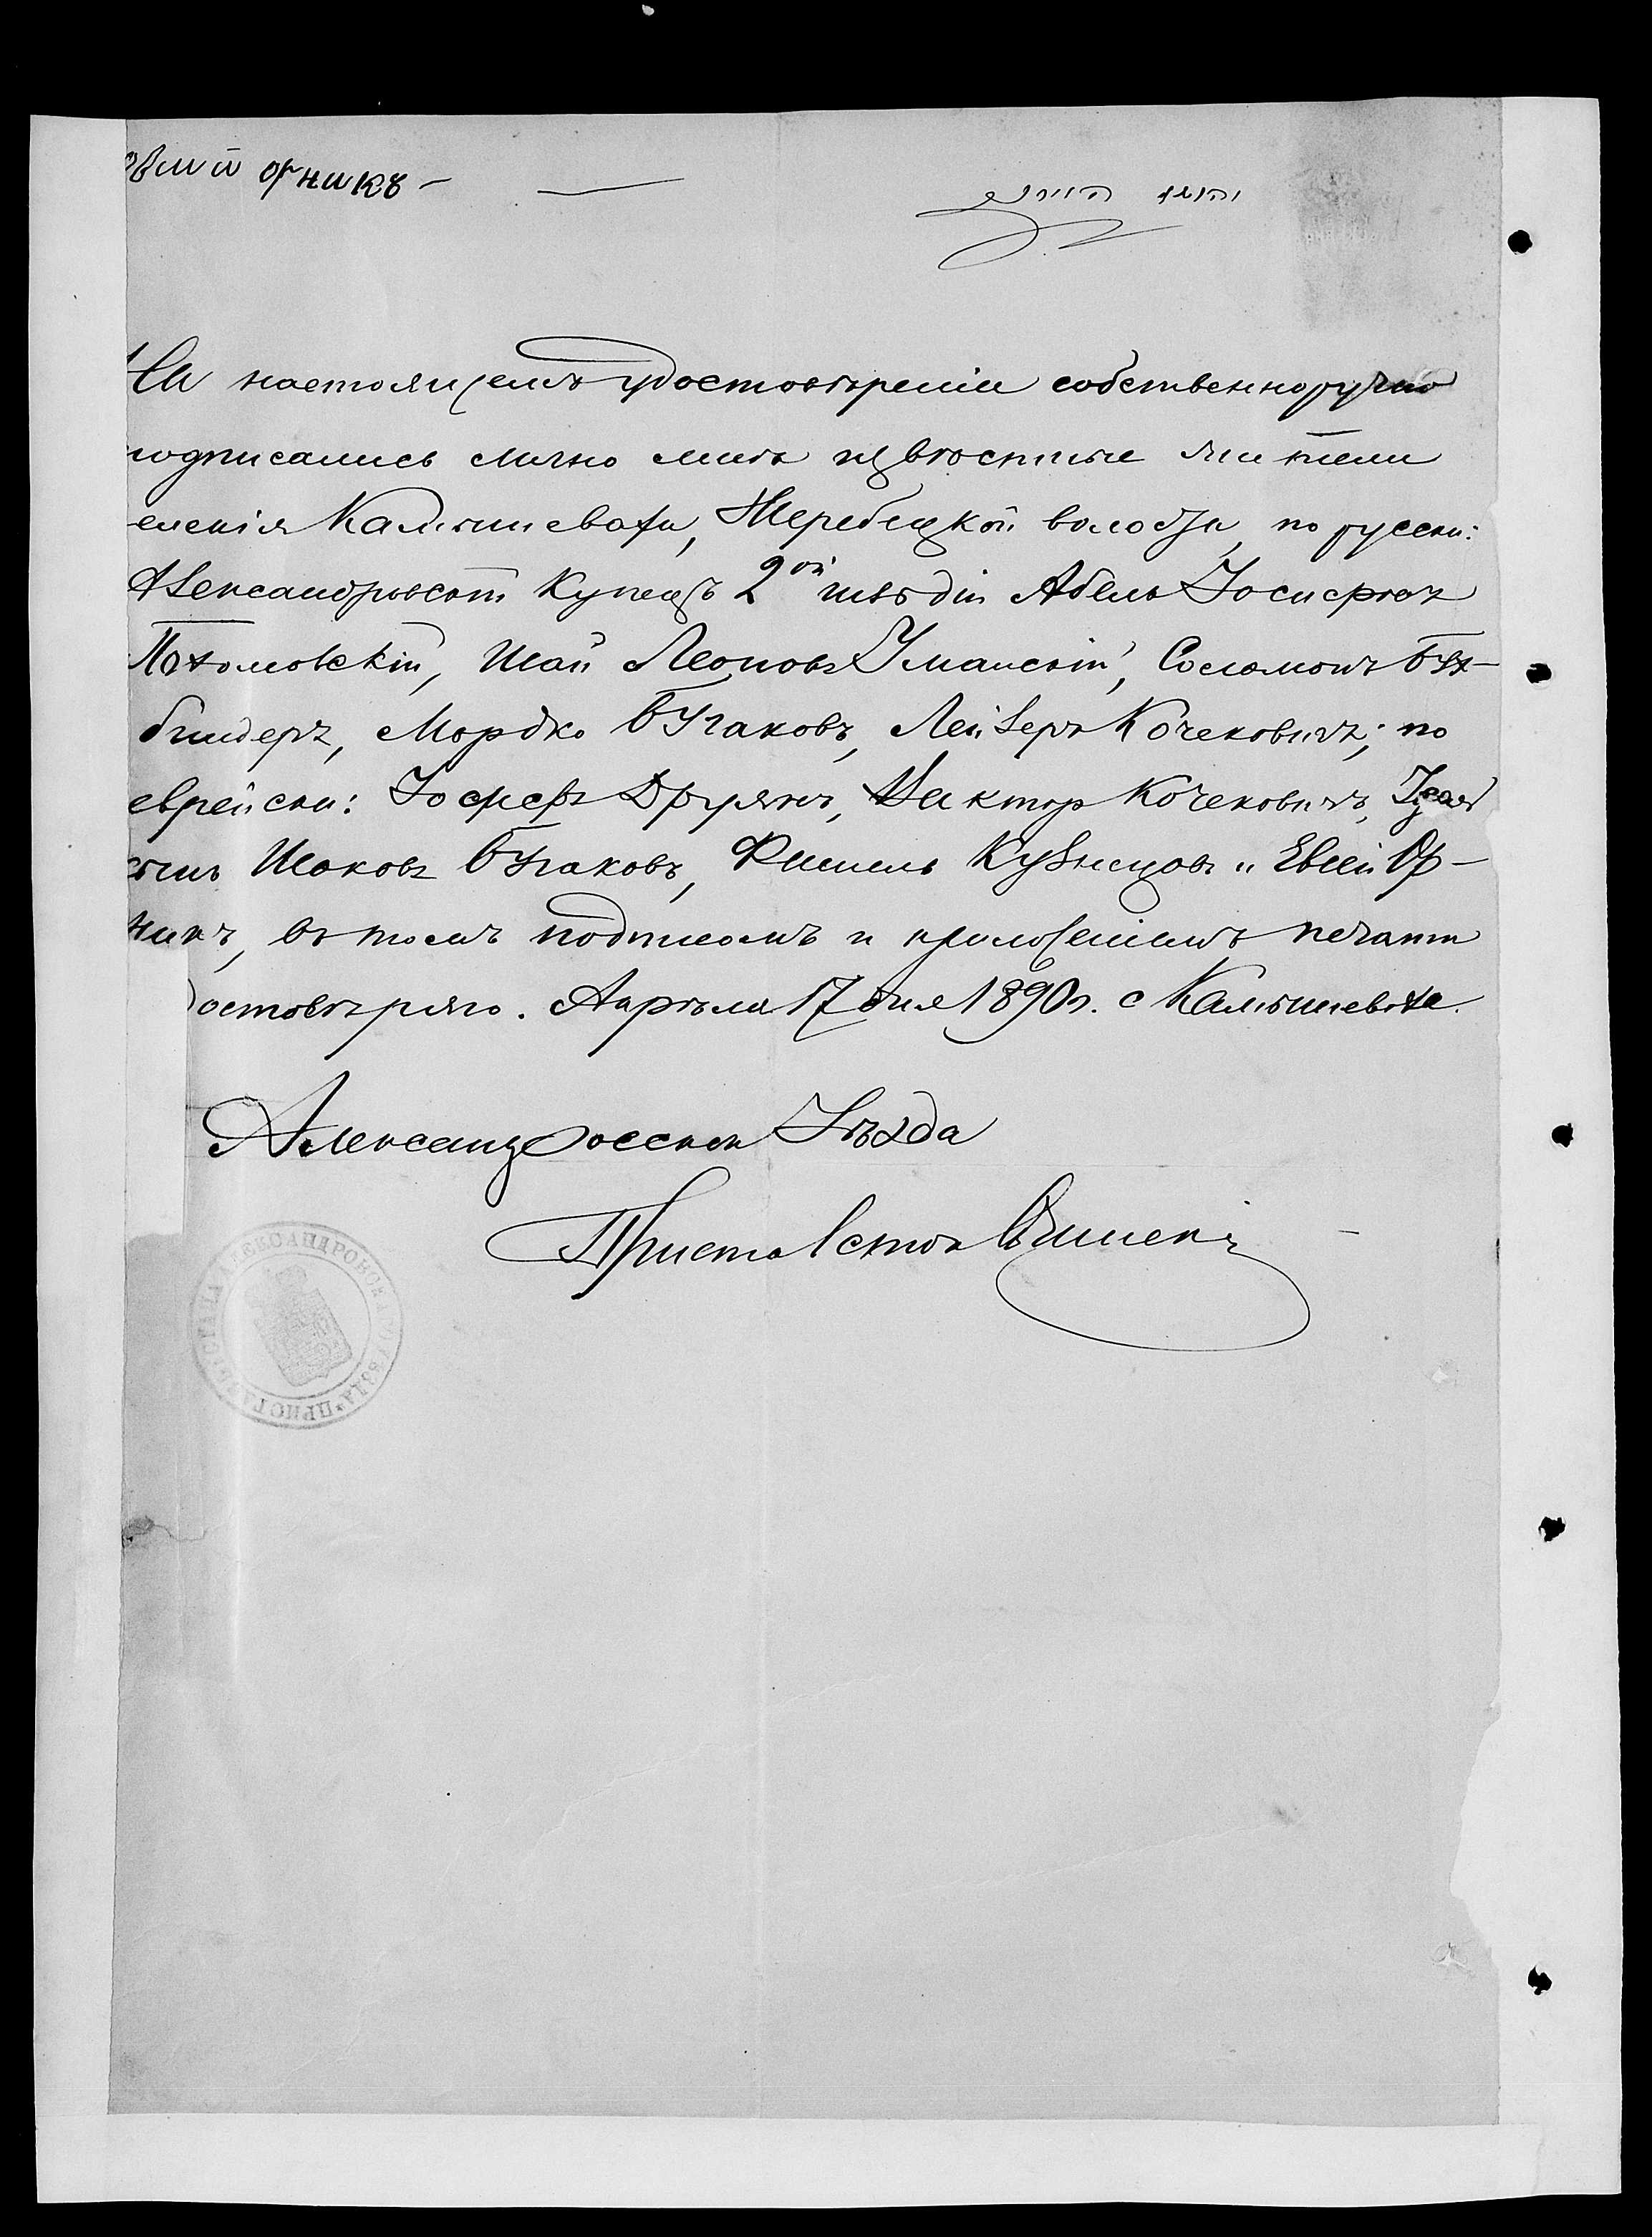 Орникъ —
На настоящемъ удостовѣреніи собственноручно
подписались лично мнѣ извѣстные жители
селенія Камышеваха, Жеребецкой волости, по русски:
Александровскій Купецъ 2ой гильдіи Абель Іосифовъ
Потомовскій, Шай Леоновъ Уманскій, Соломонъ Бух-
биндеръ, Мордко Бугаковъ, Лейзеръ Кочековичъ; по
еврейски: Іосифъ Друянъ, Кочековичъ,
Шаковъ Бугаковъ, Фишель Кузнецовъ и Евсей Ор-
никъ, въ томъ подписомъ и приложеніемъ печати
достовѣряю. Апрѣля 17 дня 1890 г. с Камышеваха.
Александровскаго Уѣзда
Приставъ
АЛЕКСАНДРОВСКАГО УѢЗДА * ПРИСТАВЪ СТАНА